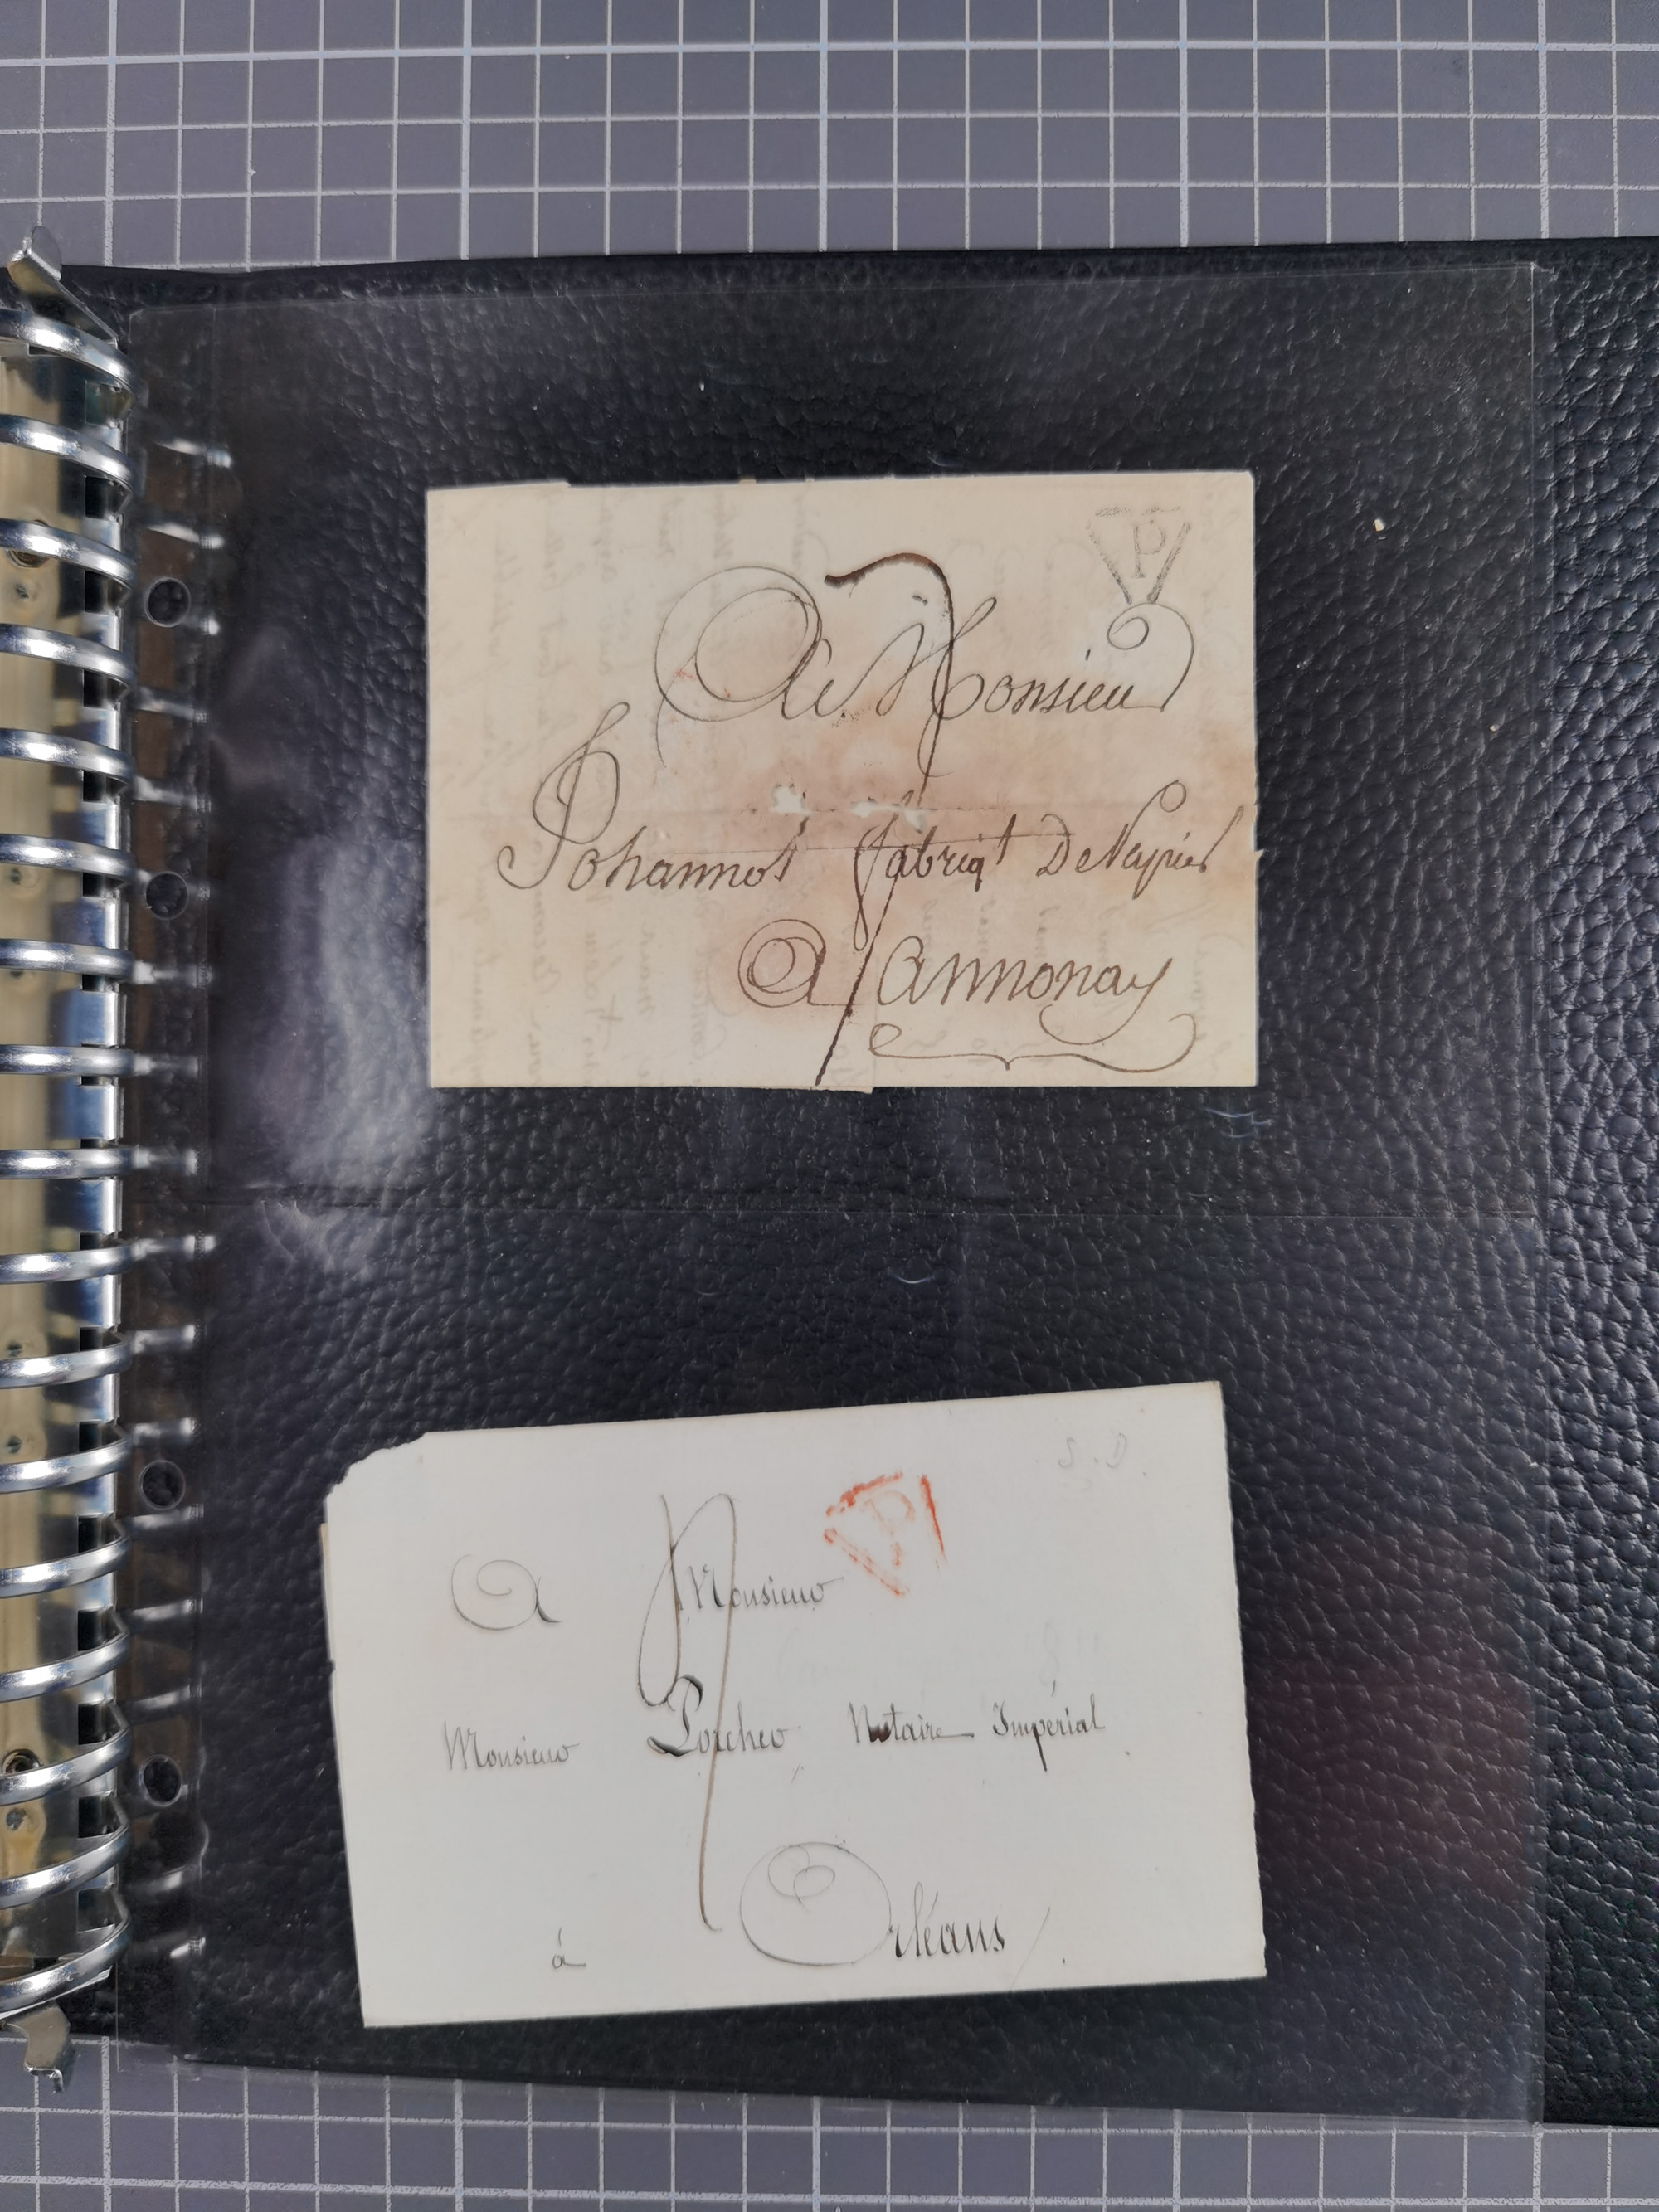 P
A Monsieur
Johannot fabriqt De Papier
A annonay
S. D.
P
A Monsieur
Monsieur Porcher Notaire Impérial
à Orléans